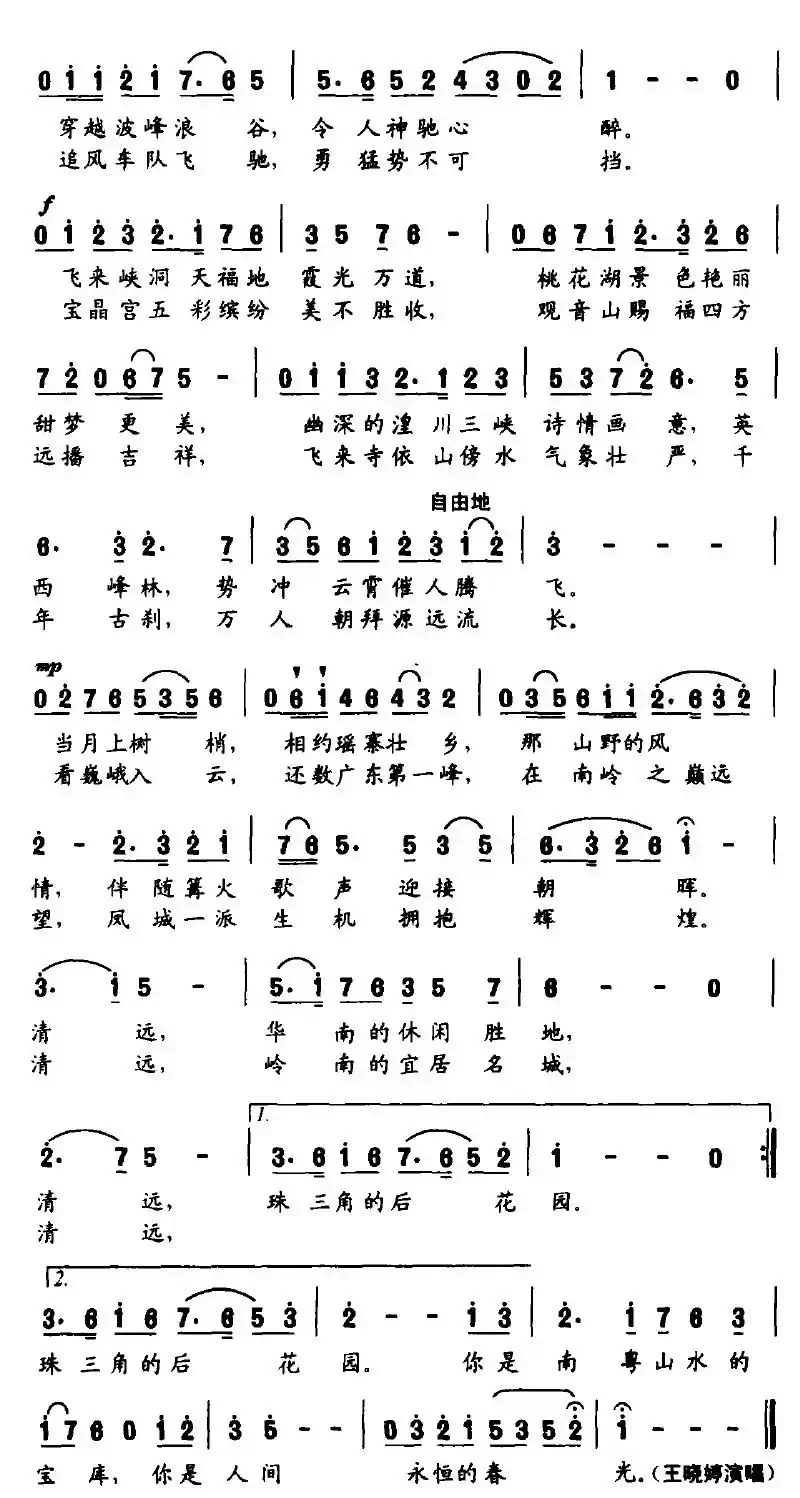 0 1 1 2 1 7. 6 5 | 5. 6 5 2 4 3 0 2 | 1 - - 0 |
穿越波峰浪 谷, 令 人神驰心 醉。
追风车队飞 驰, 勇 猛势不可 挡。
f
0 1 2 3 2. 1 7 6 | 3 5 7 6 - | 0 6 7 1 2. 3 2 6 |
飞来峡洞 天福地 霞光 万道, 桃花湖景 色艳丽
宝晶宫五 彩缤纷 美不 胜收, 观音山赐 福四方
7 2 0 6 7 5 - | 0 1 1 3 2. 1 2 3 | 5 3 7 2 6. 5 |
甜梦 更 美, 幽深的湟 川三峡 诗情画 意, 英
远播 吉 祥, 飞来寺依 山傍水 气象壮 严, 千
自由地
6. 3 2. 7 | 3 5 6 1 2 3 1 2 | 3 - - - |
西 峰林, 势 冲 云霄催人腾 飞。
年 古刹, 万 人 朝拜源远流 长。
mp
0 2 7 6 5 3 5 6 | 0 6 1 4 6 4 3 2 | 0 3 5 6 1 1 2. 6 3 2 |
当月上树 梢, 相约瑶寨壮 乡, 那 山野的风
看巍峨入 云, 还数广东第一峰, 在 南岭 之巅远
2 - 2. 3 2 1 | 7 6 5. 5 3 5 | 6. 3 2 6 1 - |
情, 伴 随篝火 歌 声 迎接 朝 晖。
望, 凤 城一派 生 机 拥抱 辉 煌。
3. 1 5 - | 5. 1 7 6 3 5 7 | 6 - - 0 |
清 远, 华 南的休闲 胜 地,
清 远, 岭 南的宜居 名 城,
1.
2. 7 5 - | 3. 6 1 6 7. 6 5 2 | 1 - - 0 :|
清 远, 珠 三角的后 花 园。
清 远,
2.
3. 6 1 6 7. 6 5 3 | 2 - - 1 3 | 2. 1 7 6 3 |
珠 三角的后 花 园。 你是 南 粤山水的
1 7 6 0 1 2 | 3 5 - - | 0 3 2 1 5 3 5 2 | 1 - - - |
宝 库, 你是 人间 永恒的春 光。(王晓婷演唱)